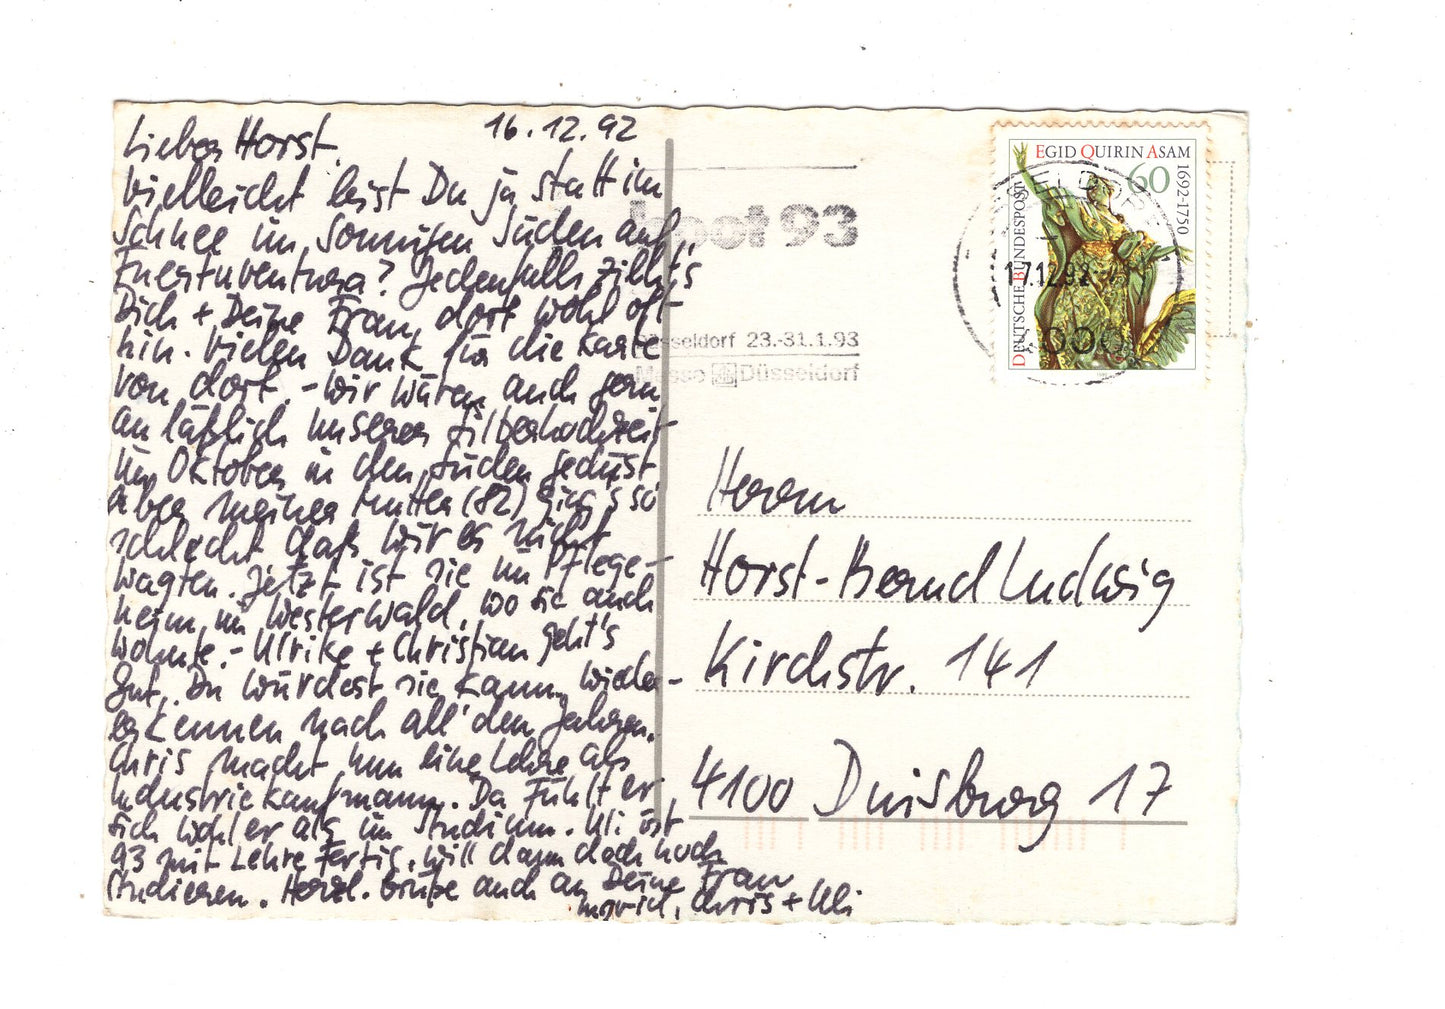 16.12.92
Lieber Horst.
Vielleicht bist Du ja statt im
Schnee im sonnigen Süden auf
Fuerteventura? Jedenfalls zieht's
Dich + Deine Frau dort wohl oft
hin. Vielen Dank für die Karte
von dort. - Wir wären auch gern
anläßlich unserer Silberhochzeit
im Oktober in den Süden gedüst
aber meiner Mutter (82) ging's so
schlecht daß wir es nicht
wagten. Jetzt ist sie im Pflege-
heim im Westerwald, wo sie auch
wohnte. - Ulrike + Christian geht's
gut. Du würdest sie kaum wieder-
erkennen nach all' den Jahren.
Chris macht nun eine Lehre als
Industriekaufmann. Da fühlt er
sich wohler als im Studium. Uli ist
93 mit Lehre fertig, will dann doch noch
studieren. Herzl. Grüße auch an Deine Frau
Chris + Uli
boot 93
Düsseldorf 23.-31.1.93
Messe Düsseldorf
EGID QUIRIN ASAM
1692-1750
60
DEUTSCHE BUNDESPOST
17.12.92
Herrn
Horst-Bernd Ludwig
Kirchstr. 141
4100 Duisburg 17